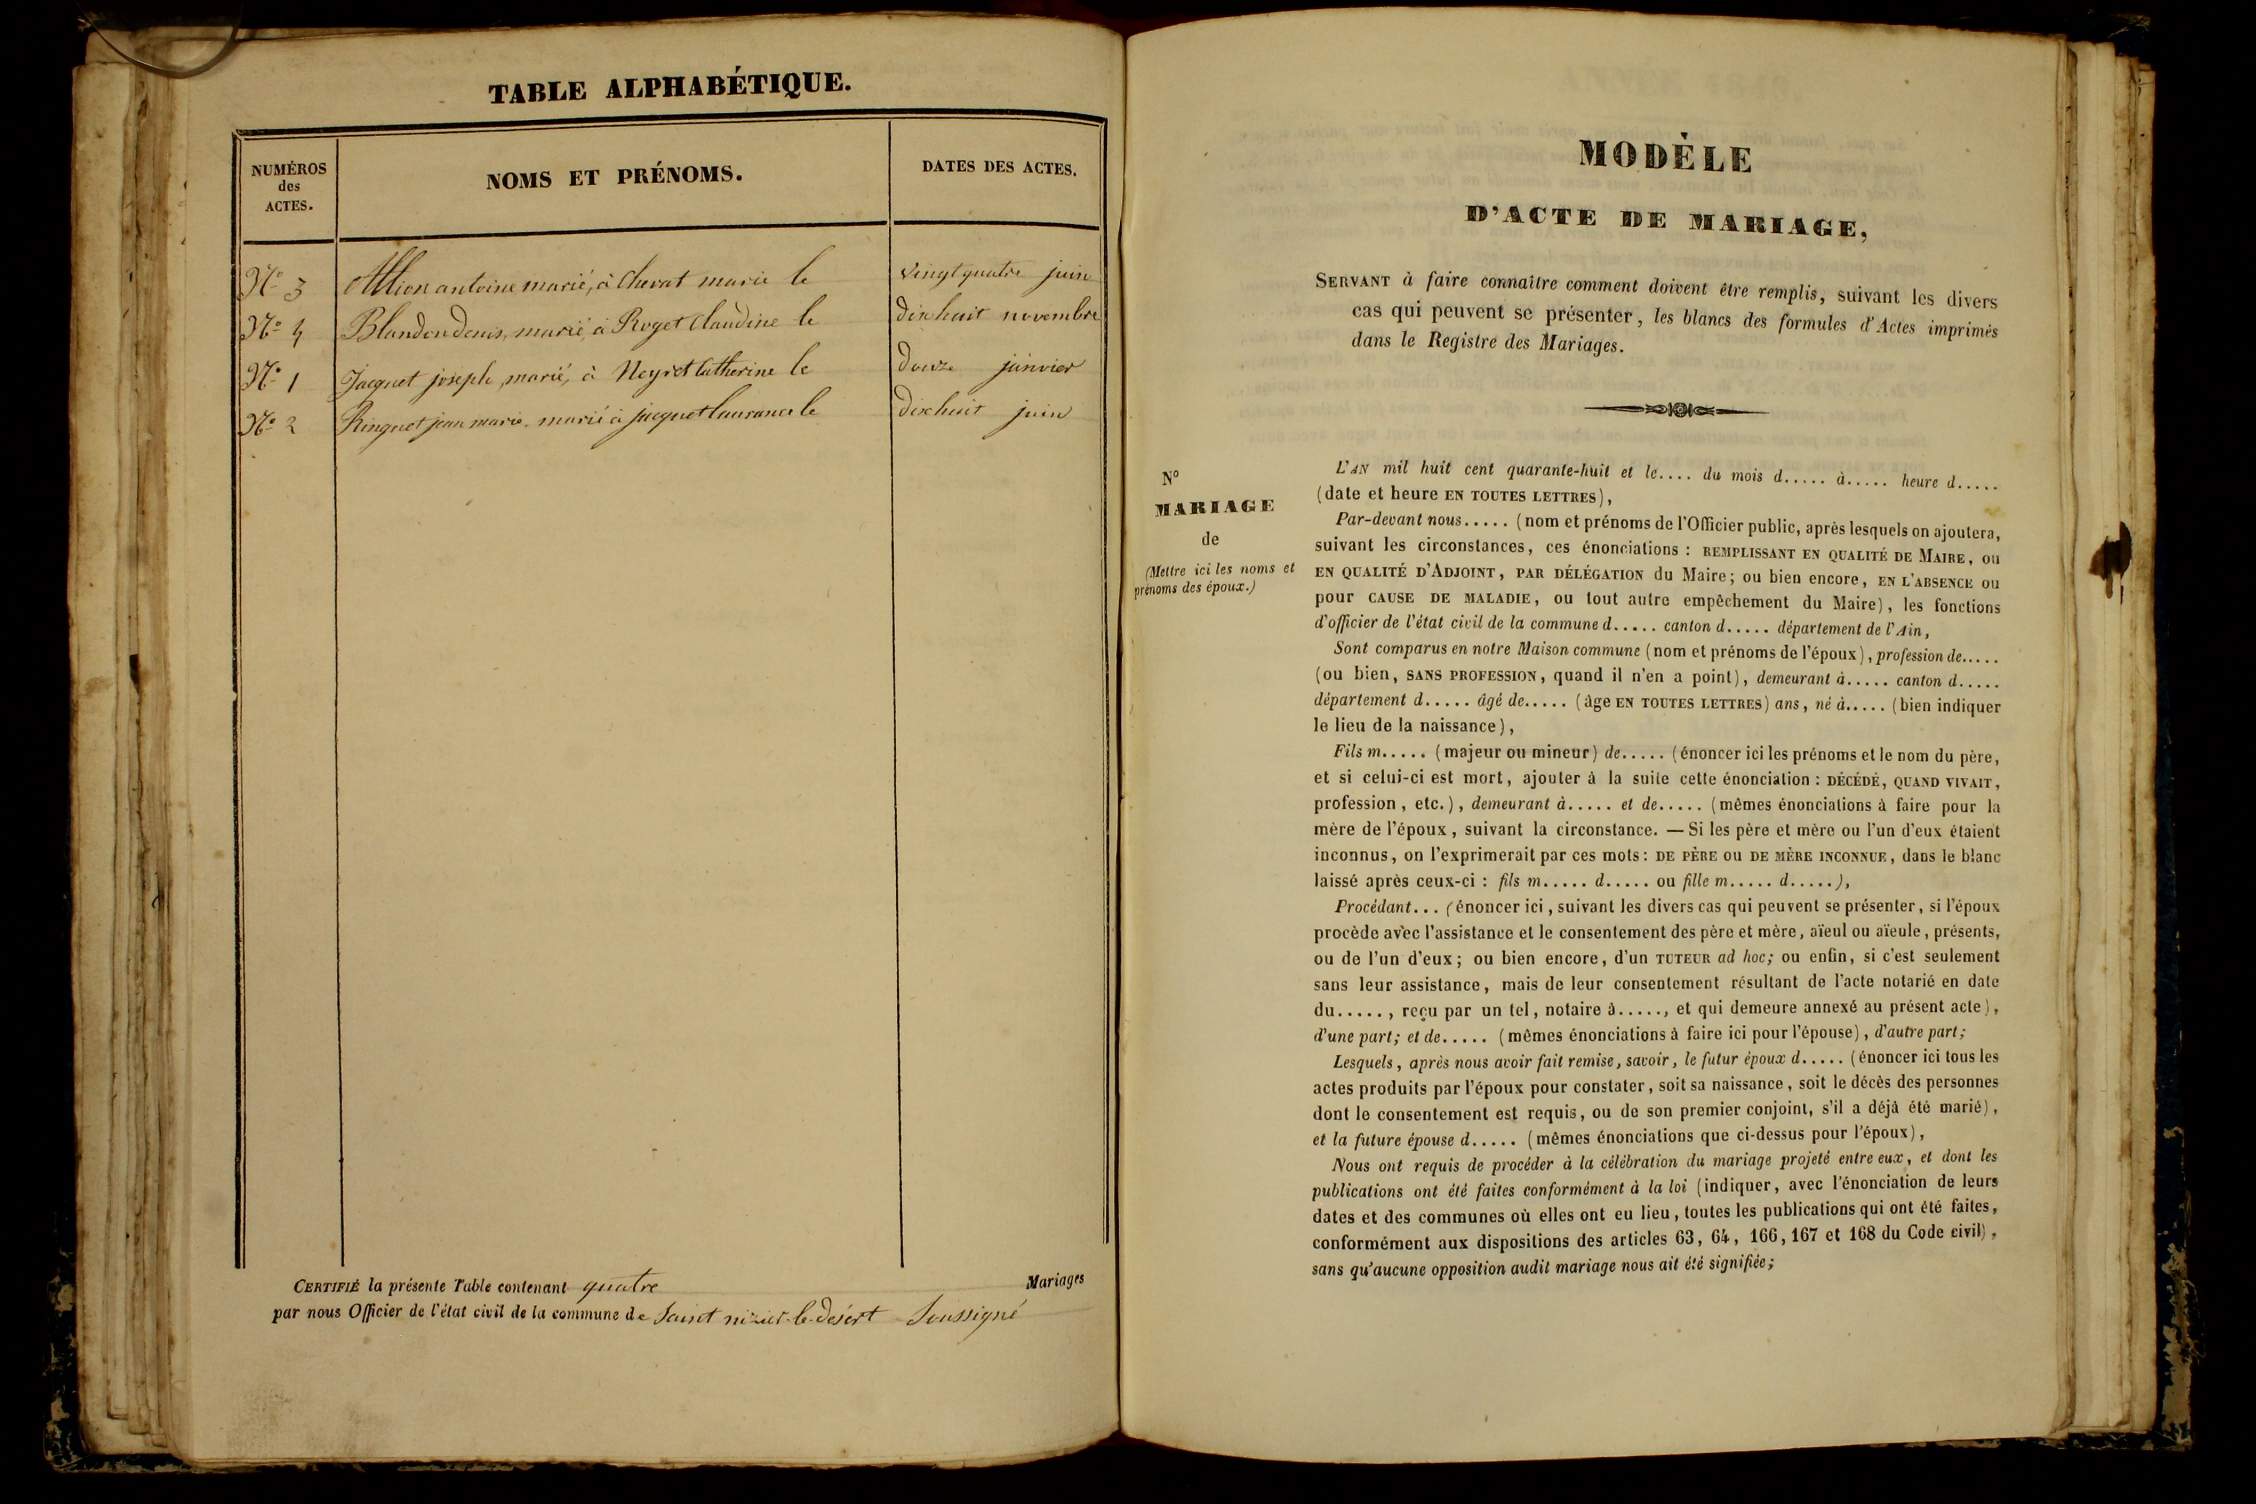 TABLE ALPHABÉTIQUE.
NUMÉROS
des
ACTES.
NOMS ET PRÉNOMS.
DATES DES ACTES.
No 3 Allion antoine marié, à Chevat marie le vingt quatre juin
No 4 Blandon denis, marié, à Roget Claudine le dixhuit novembre
No 1 Jacquet joseph, marié, à Neyret Catherine le douze janvier
No 2 Ringuet jean marie. marié à jacquet laurance le dixhuit juin
CERTIFIÉ la présente Table contenant quatre Mariages
par nous Officier de l'état civil de la commune de Saint nizier-le-désert Soussigné
MODÈLE
D'ACTE DE MARIAGE,
SERVANT à faire connaître comment doivent être remplis, suivant les divers
cas qui peuvent se présenter, les blancs des formules d'Actes imprimés
dans le Registre des Mariages.
No
MARIAGE
de
(Mettre ici les noms et
prénoms des époux.)
L'AN mil huit cent quarante-huit et le.... du mois d..... à..... heure d.....
(date et heure EN TOUTES LETTRES),
Par-devant nous..... (nom et prénoms de l'Officier public, après lesquels on ajoutera,
suivant les circonstances, ces énonciations : REMPLISSANT EN QUALITÉ DE MAIRE, ou
EN QUALITÉ D'ADJOINT, PAR DÉLÉGATION du Maire; ou bien encore, EN L'ABSENCE ou
pour CAUSE DE MALADIE, ou tout autre empêchement du Maire), les fonctions
d'officier de l'état civil de la commune d..... canton d..... département de l'Ain,
Sont comparus en notre Maison commune (nom et prénoms de l'époux), profession de.....
(ou bien, SANS PROFESSION, quand il n'en a point), demeurant à..... canton d.....
département d..... âgé de..... (âge EN TOUTES LETTRES) ans, né à..... (bien indiquer
le lieu de la naissance),
Fils m..... (majeur ou mineur) de..... (énoncer ici les prénoms et le nom du père,
et si celui-ci est mort, ajouter à la suite cette énonciation : DÉCÉDÉ, QUAND VIVAIT,
profession, etc.), demeurant à..... et de..... (mêmes énonciations à faire pour la
mère de l'époux, suivant la circonstance. — Si les père et mère ou l'un d'eux étaient
inconnus, on l'exprimerait par ces mots: DE PÈRE ou DE MÈRE INCONNUE, dans le blanc
laissé après ceux-ci : fils m..... d..... ou fille m..... d.....),
Procédant... (énoncer ici, suivant les divers cas qui peuvent se présenter, si l'époux
procède avec l'assistance et le consentement des père et mère, aïeul ou aïeule, présents,
ou de l'un d'eux; ou bien encore, d'un TUTEUR ad hoc; ou enfin, si c'est seulement
sans leur assistance, mais de leur consentement résultant de l'acte notarié en date
du....., reçu par un tel, notaire à....., et qui demeure annexé au présent acte),
d'une part; et de..... (mêmes énonciations à faire ici pour l'épouse), d'autre part;
Lesquels, après nous avoir fait remise, savoir, le futur époux d..... (énoncer ici tous les
actes produits par l'époux pour constater, soit sa naissance, soit le décès des personnes
dont le consentement est requis, ou de son premier conjoint, s'il a déjà été marié),
et la future épouse d..... (mêmes énonciations que ci-dessus pour l'époux),
Nous ont requis de procéder à la célébration du mariage projeté entre eux, et dont les
publications ont été faites conformément à la loi (indiquer, avec l'énonciation de leurs
dates et des communes où elles ont eu lieu, toutes les publications qui ont été faites,
conformément aux dispositions des articles 63, 64, 166, 167 et 168 du Code civil),
sans qu'aucune opposition audit mariage nous ait été signifiée;